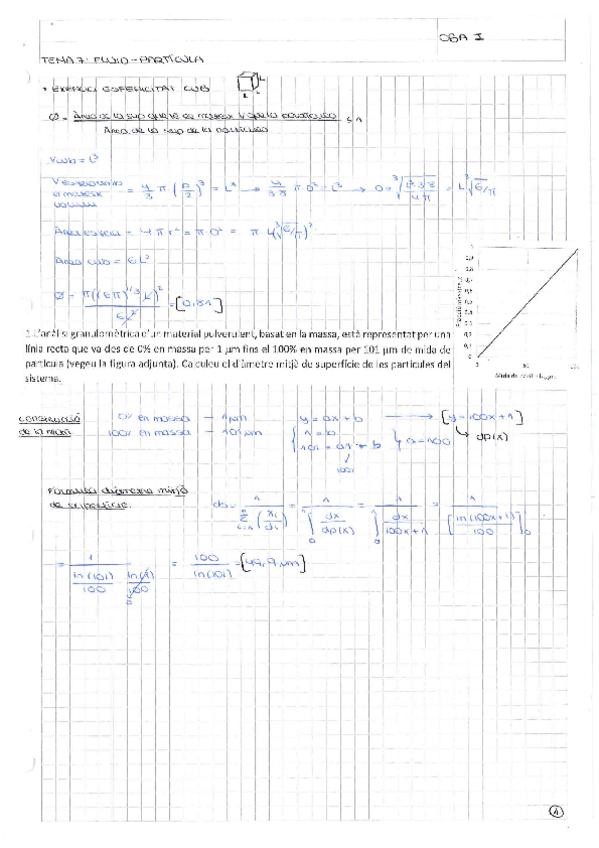 OBA I
TEMA 7: FLUID - PARTÍCULA
• EXERCICI ESFERICITAT CUB
L
L L
Ø = Àrea de la sup que té de mateix V que la partícula
Àrea de la sup de la partícula
≤ 1
Vcub = L³
V esfera amb el mateix volum = 4/3 π (D/2)³ = L³ → 4/(3·8) π D³ = L³ → D = ∛(L³·3·8 / 4π) = L ∛(6/π)
Àrea esfera = 4πr² = πD² = π L(∛(6/π))²
Àrea cub = 6L²
= [0,81]
1. L'anàlisi granulomètrica d'un material pulverulent, basat en la massa, està representat per una
línia recta que va des de 0% en massa per 1 µm fins el 100% en massa per 101 µm de mida de
partícula (vegeu la figura adjunta). Calculeu el diàmetre mitjà de superfície de les partícules del
sistema.
construcció de la recta
0% en massa → 1 µm
100% en massa → 101 µm
y = ax + b → [y = 100x + 1]
→ dp(x)
{ 1 = b
101 = a1 + b } a = 100
Fórmula diàmetre mitjà
de superfície.
= 1 / ∫ dx/dp(x) = 1 / ∫ dx/(100x+1) = 1 / [ln(100x+1)/100]
= 1 / (ln(101)/100 - ln(1)/100) = 100/ln(101) = [
0
4